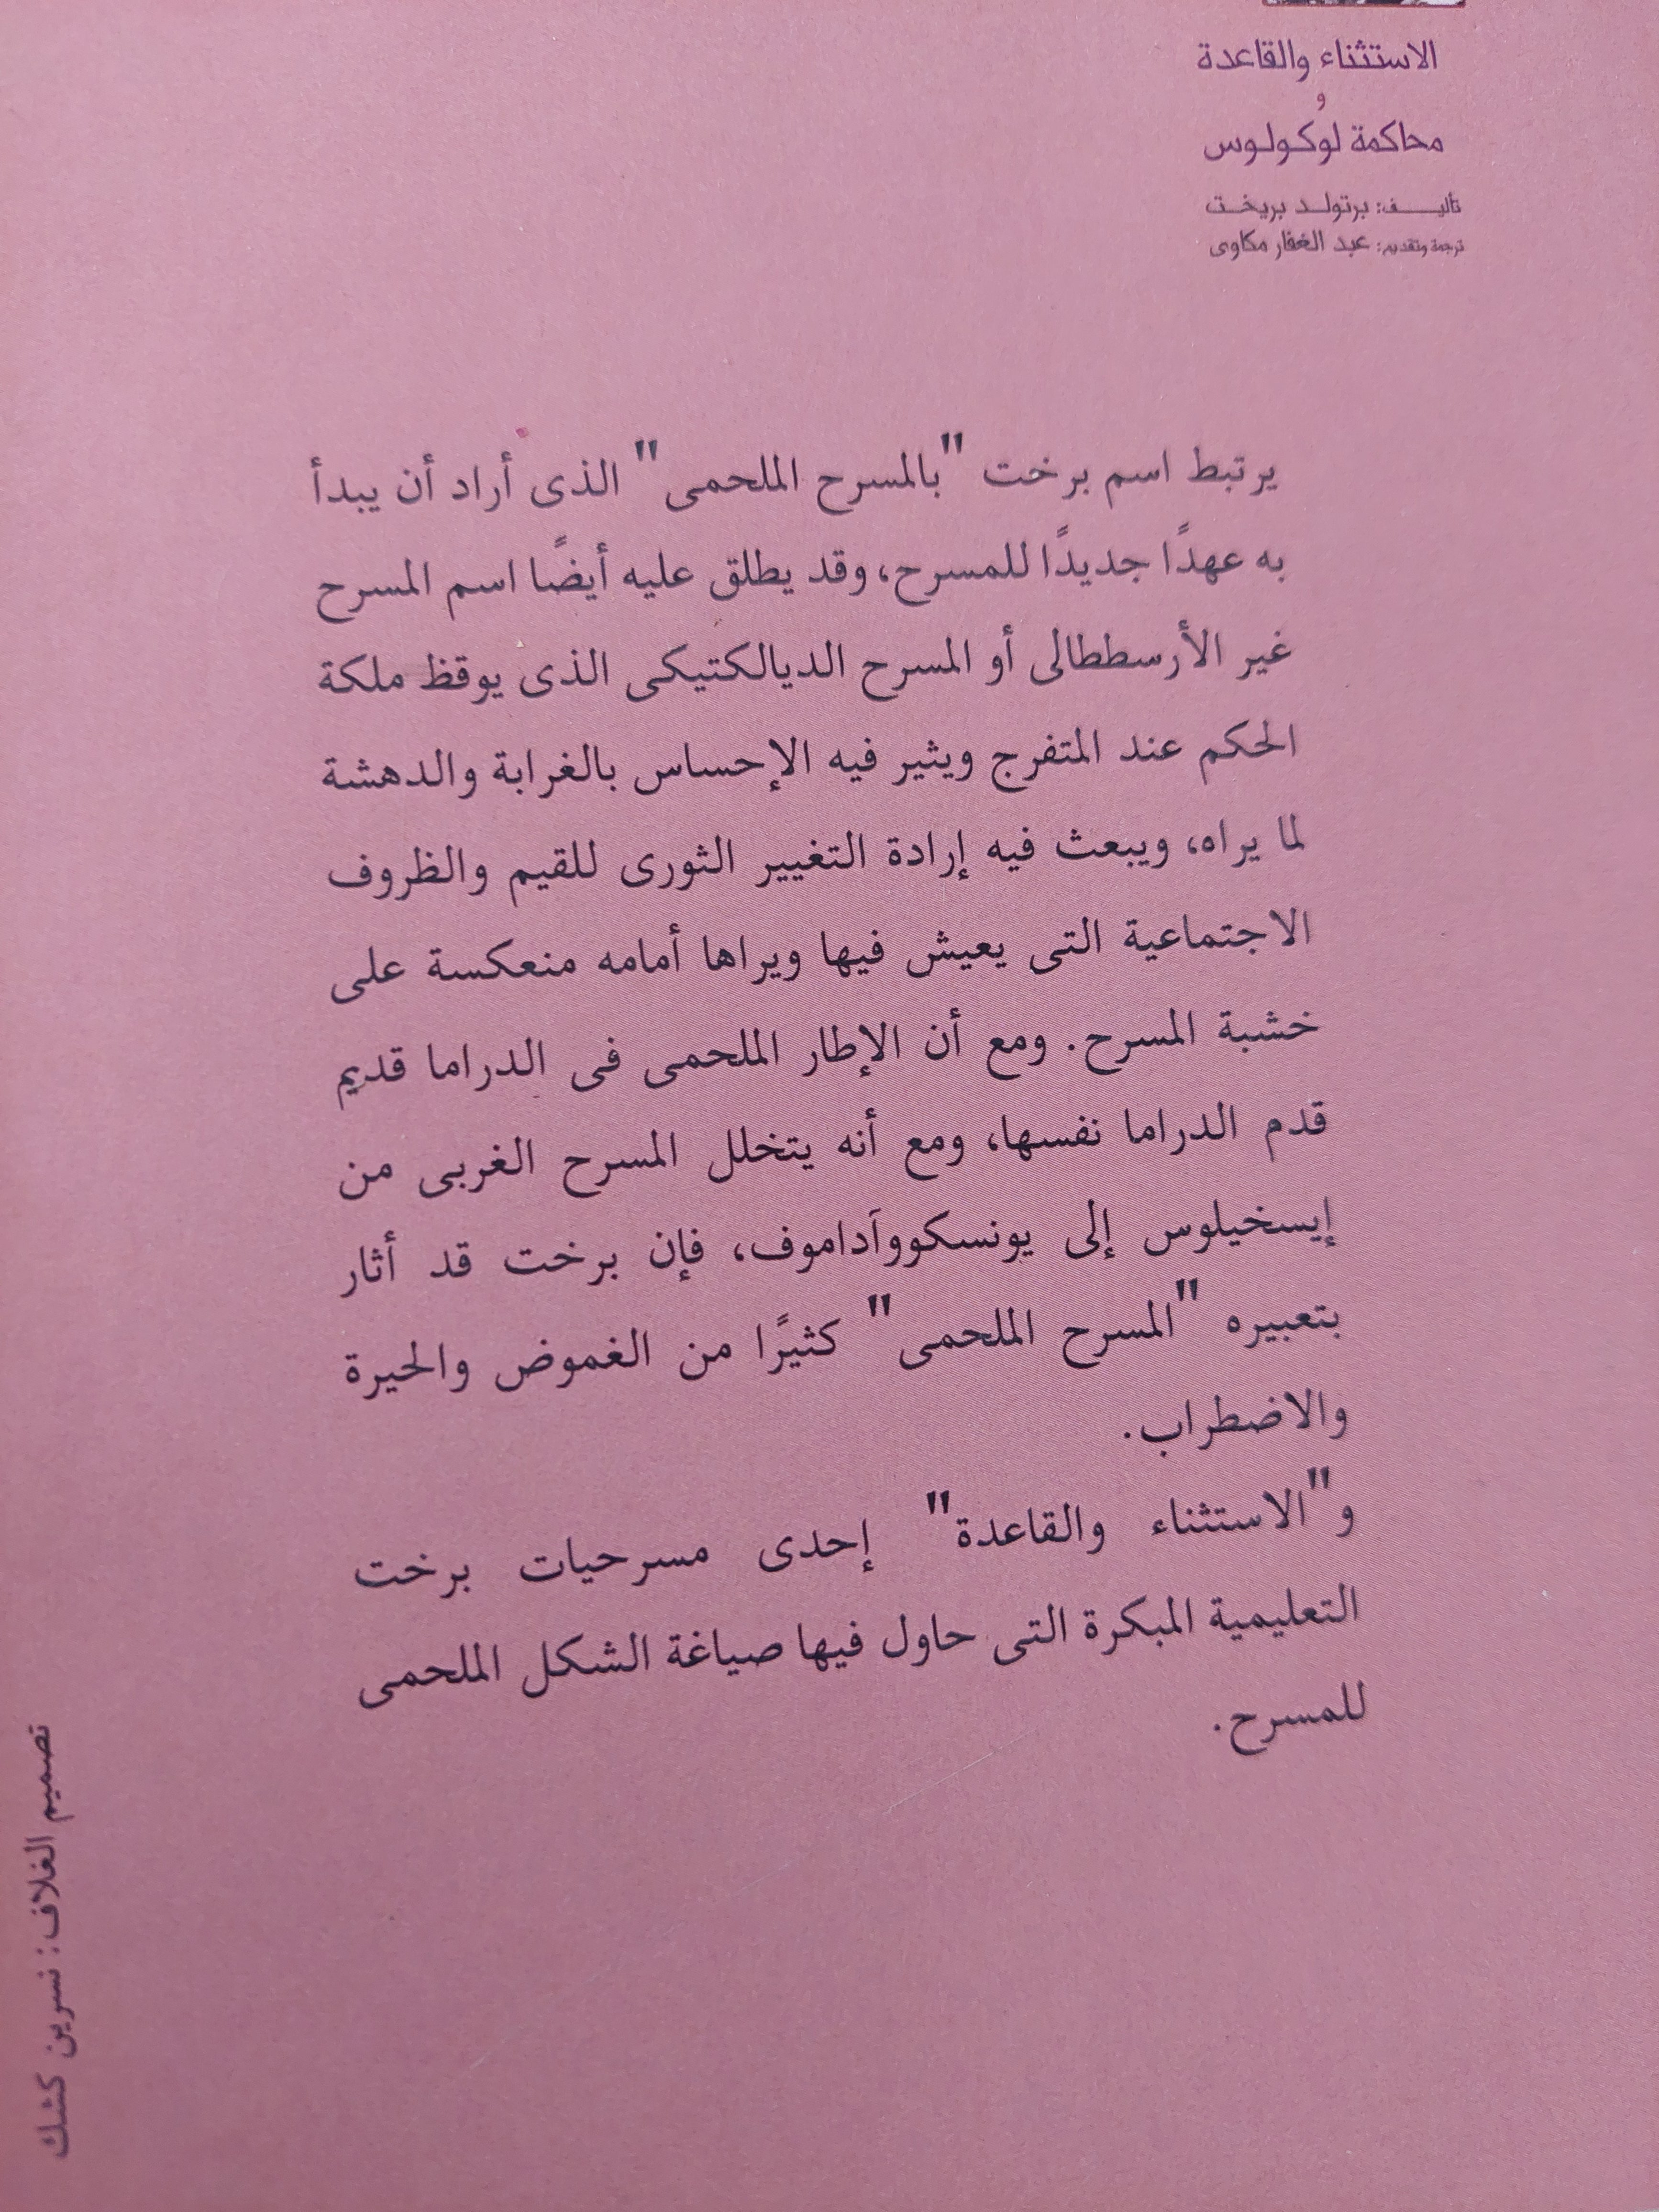 الاستثناء والقاعدة
و
محاكمة لوكولوس
تأليف: برتولد بريخت
ترجمة وتقديم: عبد الغفار مكاوى
يرتبط اسم برخت "بالمسرح الملحمى" الذى أراد أن يبدأ
به عهدًا جديدًا للمسرح، وقد يطلق عليه أيضًا اسم المسرح
غير الأرسططالى أو المسرح الديالكتيكى الذى يوقظ ملكة
الحكم عند المتفرج ويثير فيه الإحساس بالغرابة والدهشة
لما يراه، ويبعث فيه إرادة التغيير الثورى للقيم والظروف
الاجتماعية التى يعيش فيها ويراها أمامه منعكسة على
خشبة المسرح. ومع أن الإطار الملحمى فى الدراما قديم
قدم الدراما نفسها، ومع أنه يتخلل المسرح الغربى من
إيسخيلوس إلى يونسكووآداموف، فإن برخت قد أثار
بتعبيره "المسرح الملحمى" كثيرًا من الغموض والحيرة
والاضطراب.
و"الاستثناء والقاعدة" إحدى مسرحيات برخت
التعليمية المبكرة التى حاول فيها صياغة الشكل الملحمى
للمسرح.
تصميم الغلاف: نسرين كشك